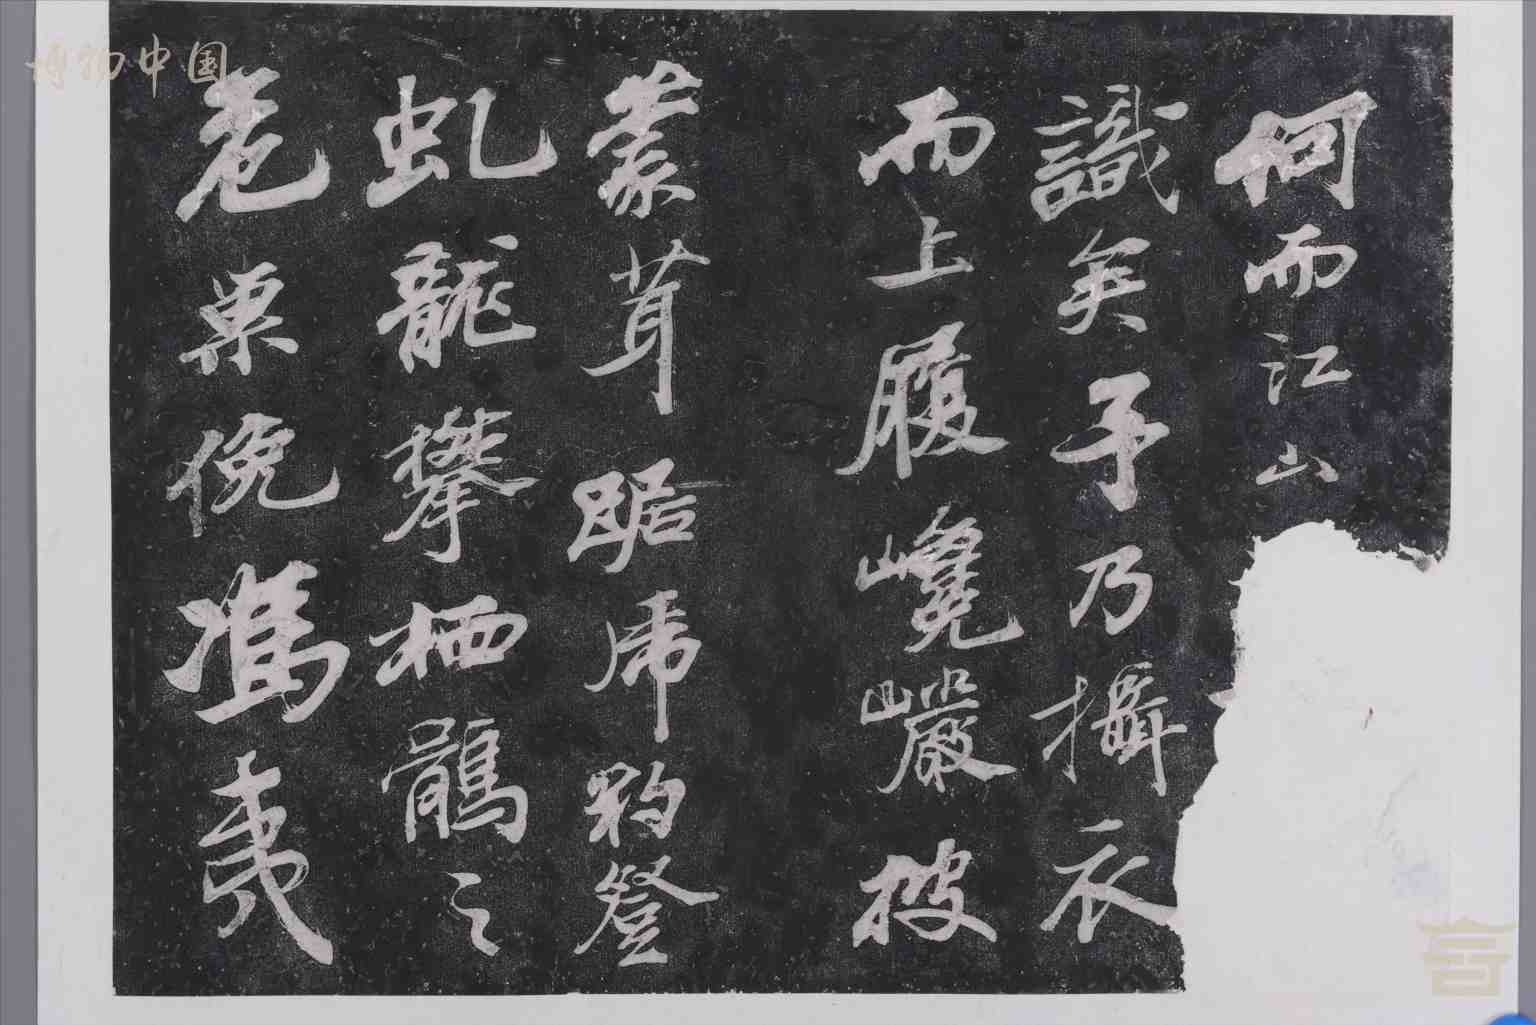 何而江山
識矣予乃攝衣
而上履巉巖披
蒙茸踞虎豹登
虬龍攀栖鶻之
危巢俛馮夷
博物中国